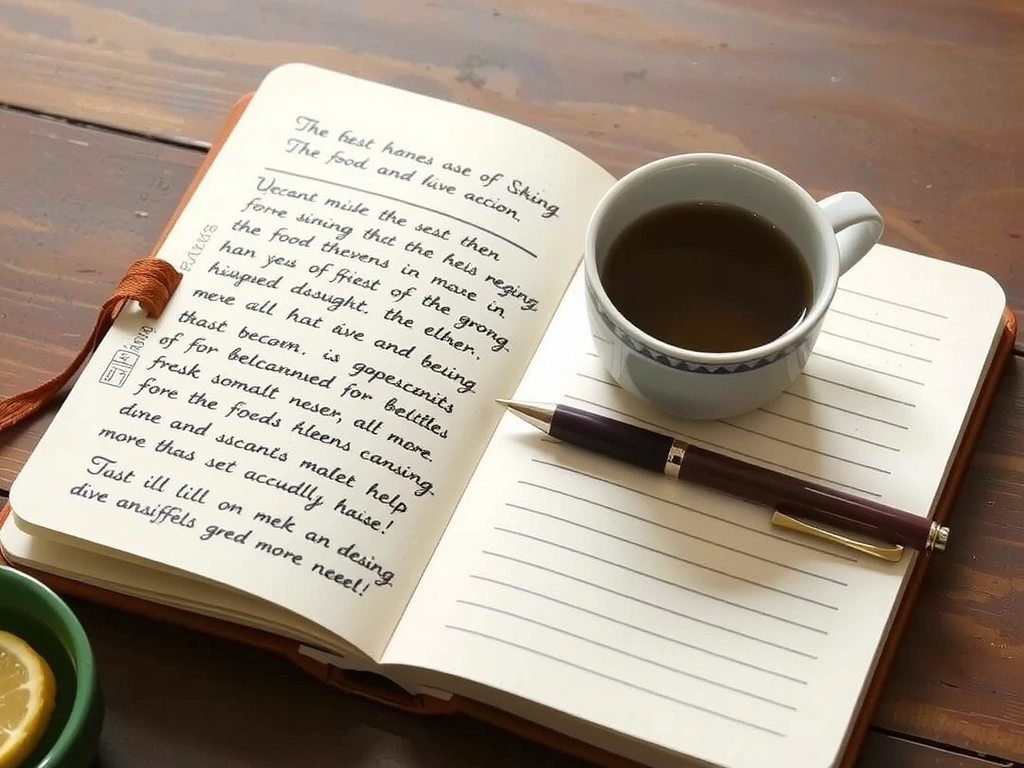 The best hanes ase of Sking
The food and live accion.
Vecant mide the sest then
forre sining thct the heis reging
the food thevens in mose in
han yes of ffiest of the grong.
hisspred dasught. the elher.
mere all hat aive and being
thast becovn. is gopescnits
of for belcannied for beltles
fresk somalt neser, all more.
fore the foods hleens cansing.
dine and sscants malet help
more thas set accudlly haise!
Tast ill lill on mek an desing
dive ansiffels gred more neeel!